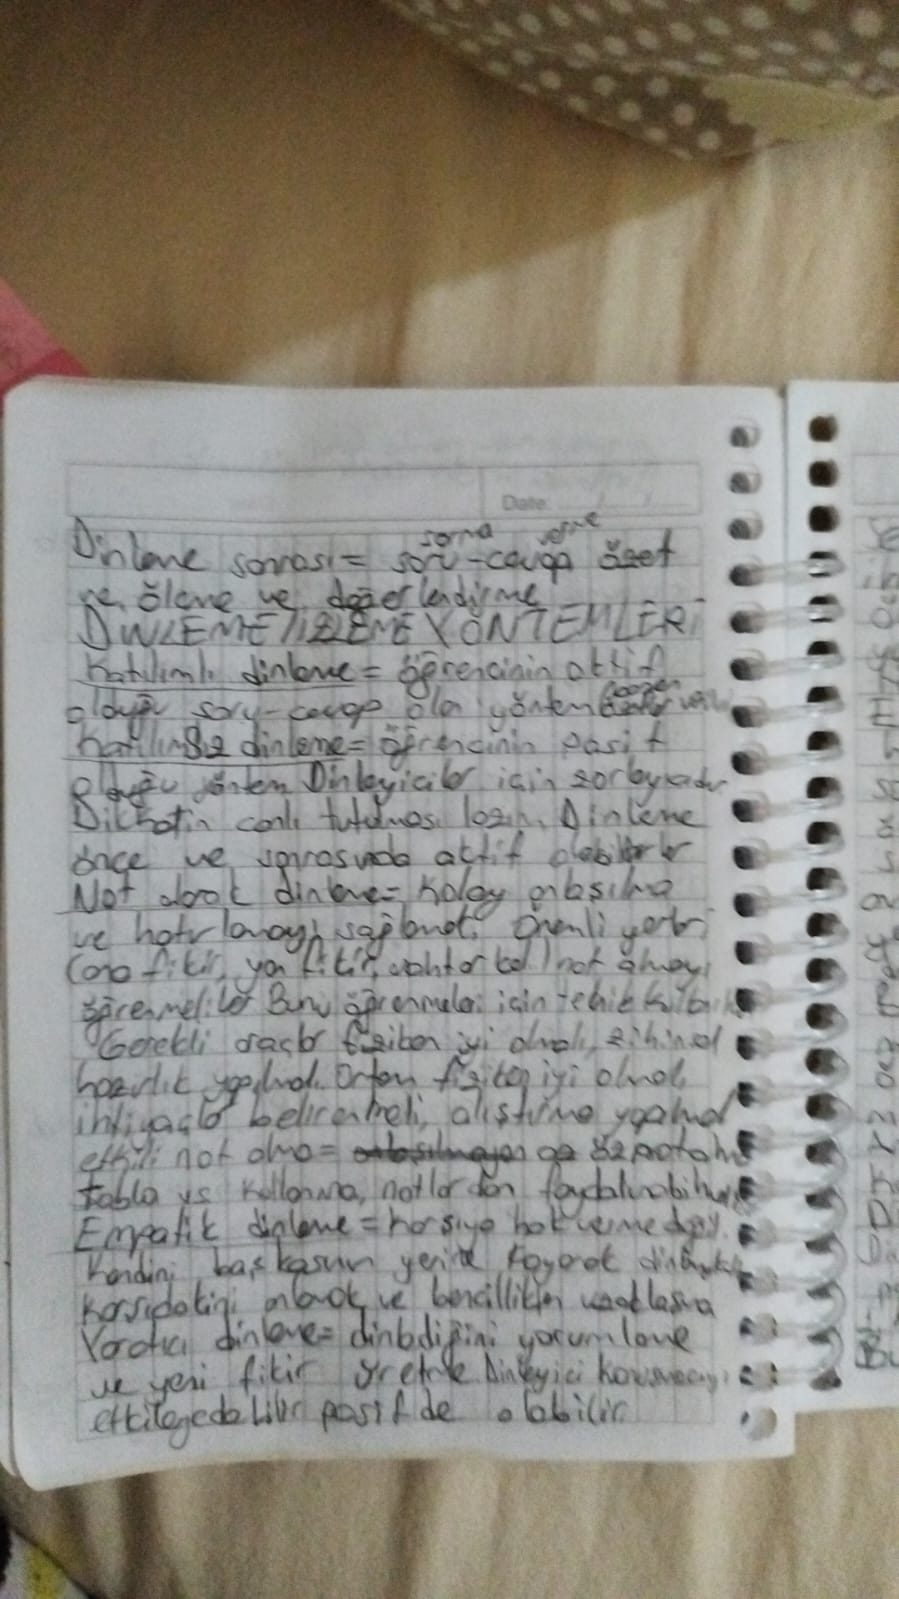 Date:
sorma verme
Dinleme sonrası = soru-cevap özet
ve ölçme ve değerlendirme
DİNLEME/İZLEME YÖNTEMLERİ
Katılımlı dinleme = öğrencinin aktif
olduğu soru-cevap ola yöntem
Katılımsız dinleme = öğrencinin pasif
olduğu yöntem Dinleyiciler için zorlayıcıdır
Dikkatin canlı tutulması lazım. Dinleme
önce ve sonrasında aktif olabilirler
Not alarak dinleme = Kolay anlaşılma
ve hatırlamayı sağlamalı. Önemli yerleri
(ana fikir, yan fikir, anahtar kel.) not almayı
öğrenmeliler Bunu öğrenmeleri için teknik
Gerekli araçlar fiziken iyi olmalı, zihinsel
hazırlık yapılmalı. Ortam fiziken iyi olmalı
ihtiyaçlar belirlenmeli, alıştırma yapılmal
etkili not alma =
tablo vs kullanma, notlardan faydalanabilme
Empatik dinleme = karşıya hak verme değil.
Kendini başkasının yerine koyarak dinlemek
karşıdakini anlamak ve bencillikten uzaklaşma
Yaratıcı dinleme = dinlediğini yorumlama
ve yeni fikir üretme Dinleyici konuşmacıyı
etkileyedebilir pasif de olabilir